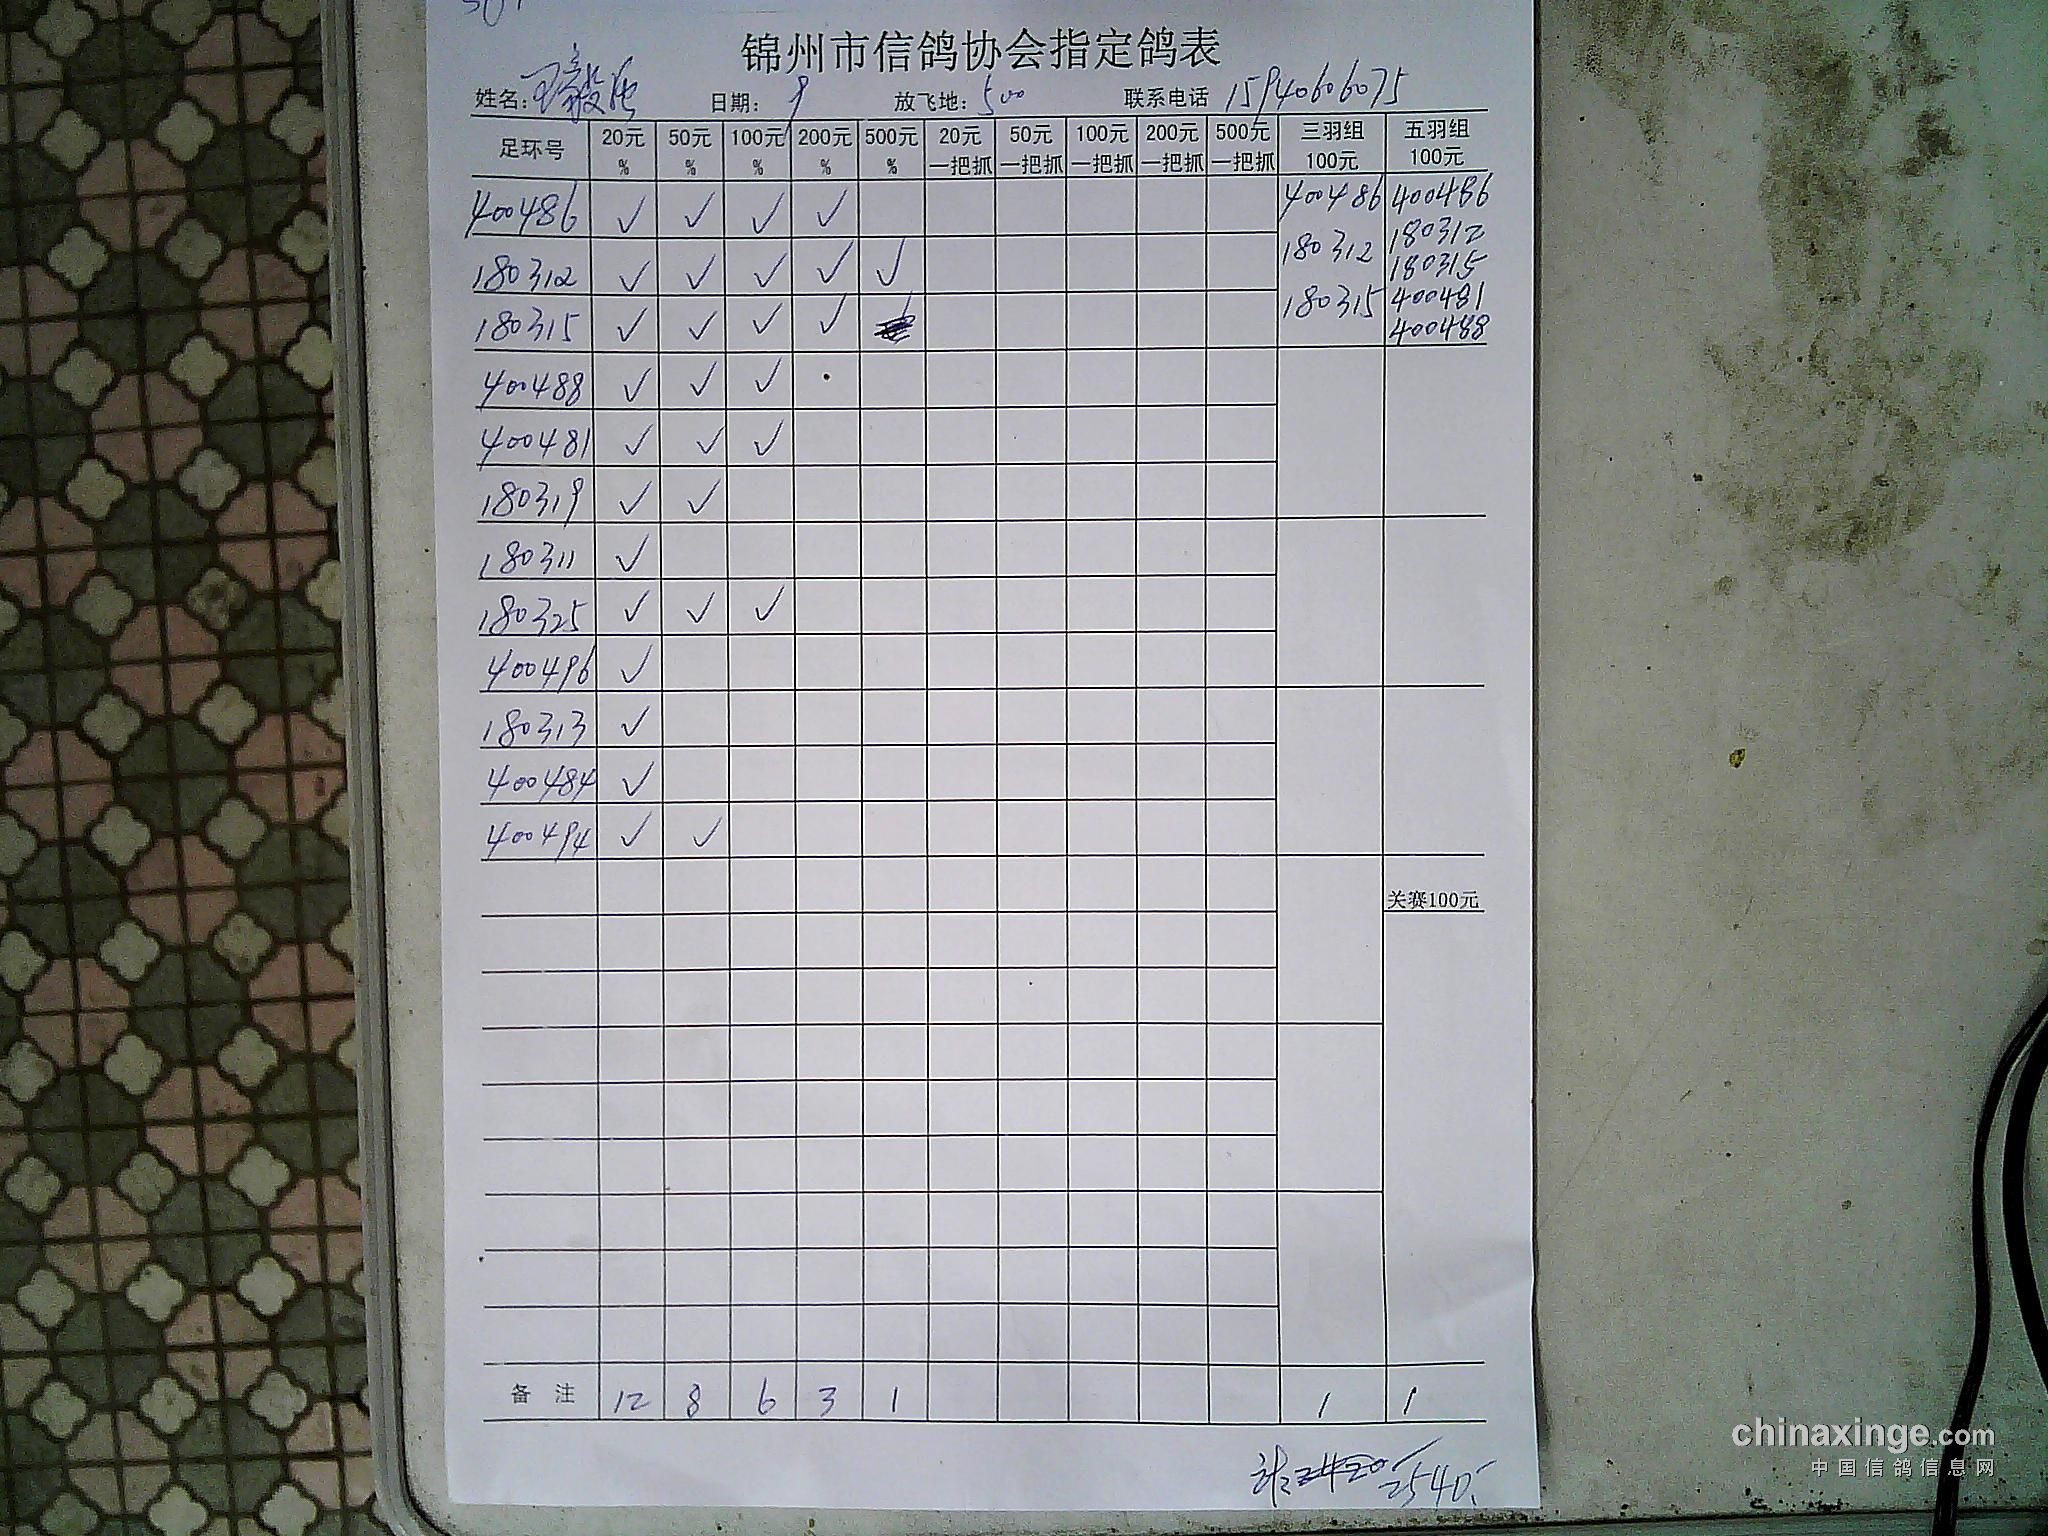 锦州市信鸽协会指定鸽表
姓名: 王毅 日期: 9 放飞地: 500 联系电话 15940606075
足环号 20元 % 50元 % 100元 % 200元 % 500元 % 20元 一把抓 50元 一把抓 100元 一把抓 200元 一把抓 500元 一把抓 三羽组 100元 五羽组 100元
400486 ✓ ✓ ✓ ✓ 400486 400486
180312 ✓ ✓ ✓ ✓ ✓ 180312 180312
180315
180315 ✓ ✓ ✓ ✓ 180315 400481
400488
400488 ✓ ✓ ✓
400481 ✓ ✓ ✓
180319 ✓ ✓
180311 ✓
180325 ✓ ✓ ✓
400496 ✓
180313 ✓
400484 ✓
400494 ✓ ✓
关赛100元
备 注 12 8 6 3 1 1 1
2540.-
chinaxinge.com
中国信鸽信息网